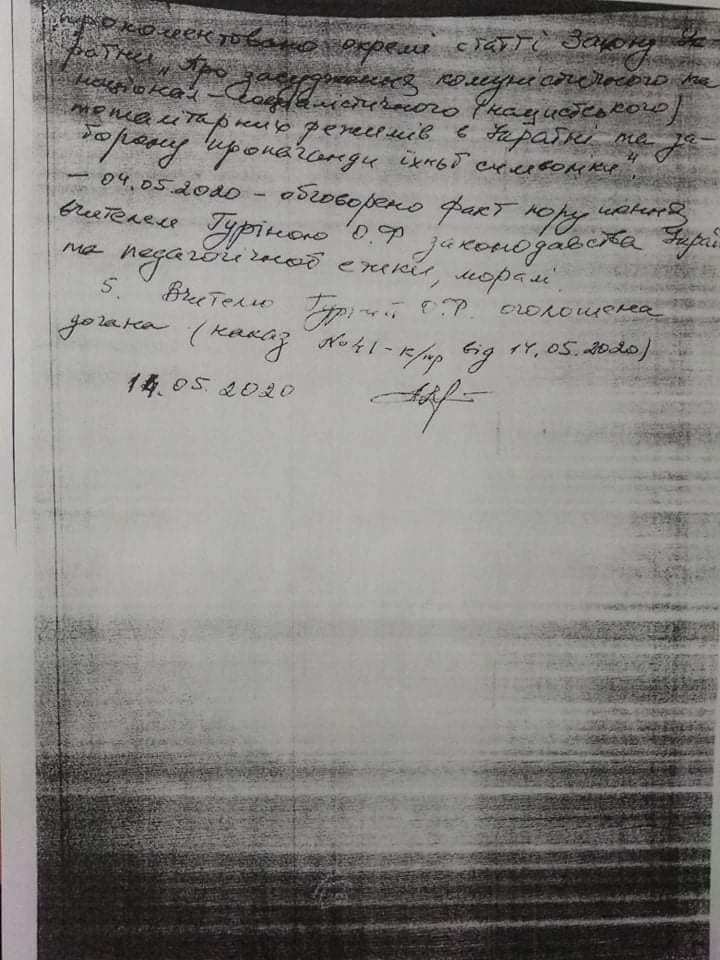 прокоментовано окремі статті Закону Ук-
раїни „Про засудження комуністичного та
націонал-соціалістичного (нацистського)
тоталітарних режимів в Україні та за-
борону пропаганди їхньої символіки".
– 04.05.2020 – обговорено факт порушення
вчителем Гуріною О.Ф законодавства Украї
та педагогічної етики, моралі.
5. Вчителю Гуріній О.Ф. оголошена
догана (наказ №41-к/тр від 14.05.2020)
14.05.2020